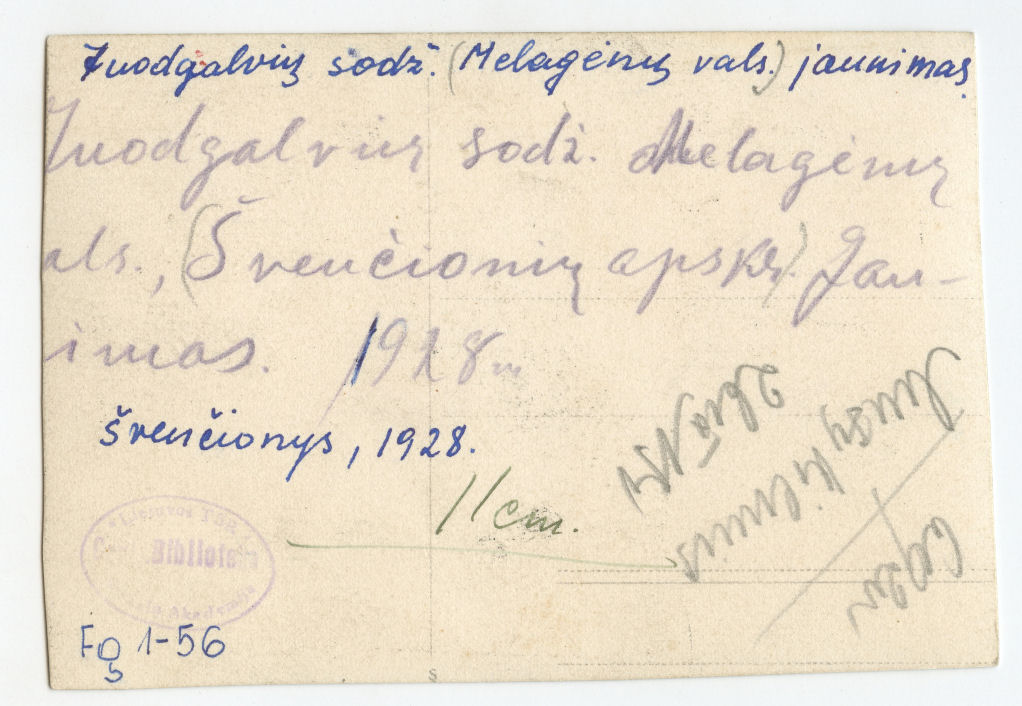 Juodgalvių sodž. (Melagėnų vals.) jaunimas
Juodgalvių sodž. Melagėnų
als., (Švenčionių apskr.) Jau-
imas. 1928 m
Švenčionys, 1928.
11 cm.
Lietuvos TSR
Bibliote
Akademi
Fg 1-56